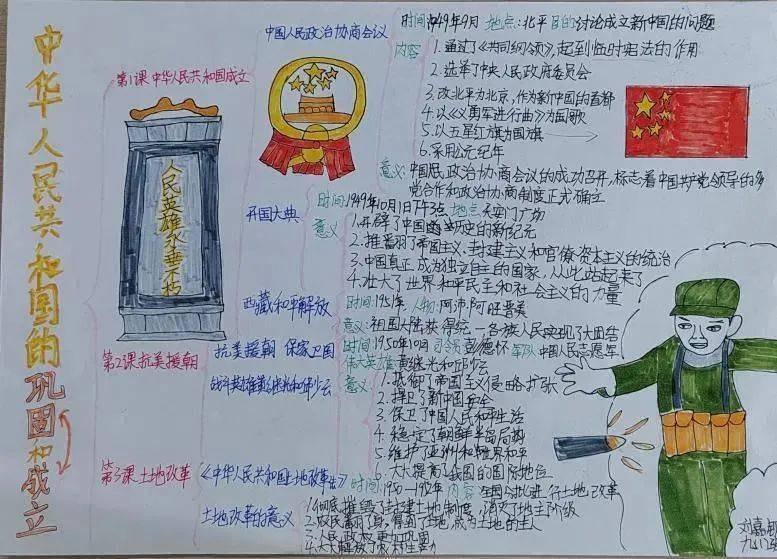 中华人民共和国的巩固和成立
第1课 中华人民共和国成立
中国人民政治协商会议
时间:1949年9月 地点:北平 目的:讨论成立新中国的问题
内容
1.通过了《共同纲领》,起到临时宪法的作用
2.选举了中央人民政府委员会
3.改北平为北京,作为新中国的首都
4.以《义勇军进行曲》为国歌
5.以五星红旗为国旗
6.采用公元纪年
意义:中国人民政治协商会议的成功召开,标志着中国共产党领导的多
党合作和政治协商制度正式确立
人民英雄永垂不朽
开国大典
时间:1949年10月1日下午3点 地点:天安门广场
意义
1.开辟了中国历史的新纪元
2.推翻了帝国主义、封建主义和官僚资本主义的统治
3.中国真正成为独立自主的国家,从此站起来了
4.壮大了世界和平民主和社会主义的力量
西藏和平解放
时间:1951年 人物:阿沛·阿旺晋美
意义:祖国大陆获得统一各族人民实现了大团结
第2课 抗美援朝
抗美援朝 保家卫国
时间:1950年10月 司令员:彭德怀 军队:中国人民志愿军
战斗英雄黄继光和邱少云
伟大英雄:黄继光和邱少云
意义
1.抵御了帝国主义侵略扩张
2.捍卫了新中国安全
3.保卫了中国人民和平生活
4.稳定了朝鲜半岛局势
5.维护了亚洲和世界和平
6.大大提高了我国的国际地位
第3课 土地改革
《中华人民共和国土地改革法》
时间:1950-1952年 内容:全国分批进行土地改革
土地改革的意义
1.彻底摧毁了封建土地制度,消灭了地主阶级
2.农民翻了身,得到了土地,成为土地的主人
3.人民政权更加巩固
4.大大解放了农村生产力
刘嘉